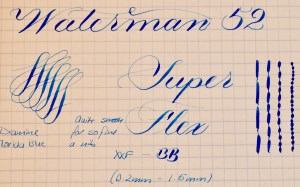 Waterman 52
Super
Flex
Diamine
Florida Blue
Quite smooth
for so fine
a nib
XXF - BB
(0.2mm - 1.6mm)